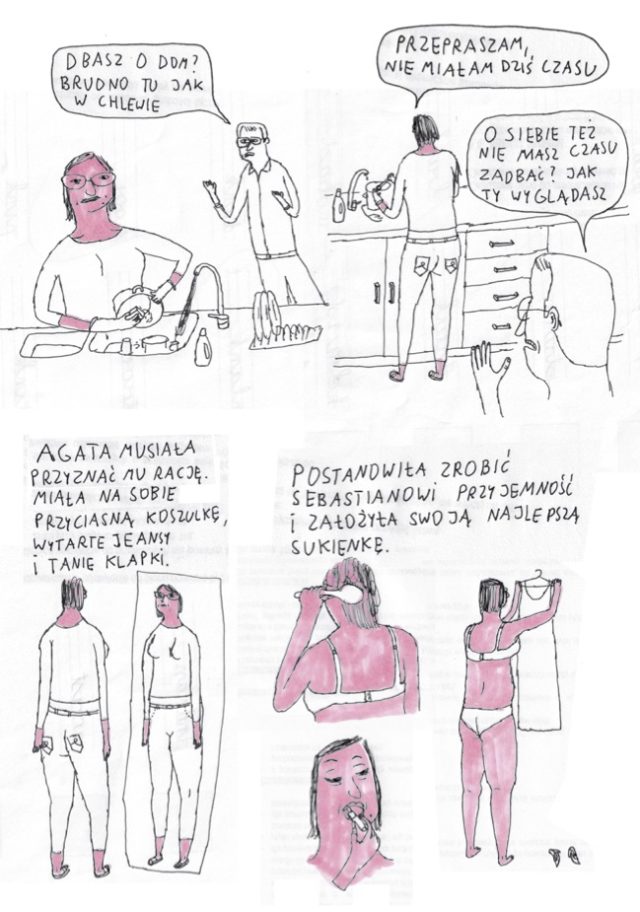 DBASZ O DOM?
BRUDNO TU JAK
W CHLEWIE
PRZEPRASZAM,
NIE MIAŁAM DZIŚ CZASU
O SIEBIE TEŻ
NIE MASZ CZASU
ZADBAĆ? JAK
TY WYGLĄDASZ
AGATA MUSIAŁA
PRZYZNAĆ MU RACJĘ.
MIAŁA NA SOBIE
PRZYCIASNĄ KOSZULKĘ,
WYTARTE JEANSY
I TANIE KLAPKI.
POSTANOWIŁA ZROBIĆ
SEBASTIANOWI PRZYJEMNOŚĆ
I ZAŁOŻYŁA SWOJĄ NAJLEPSZĄ
SUKIENKĘ.